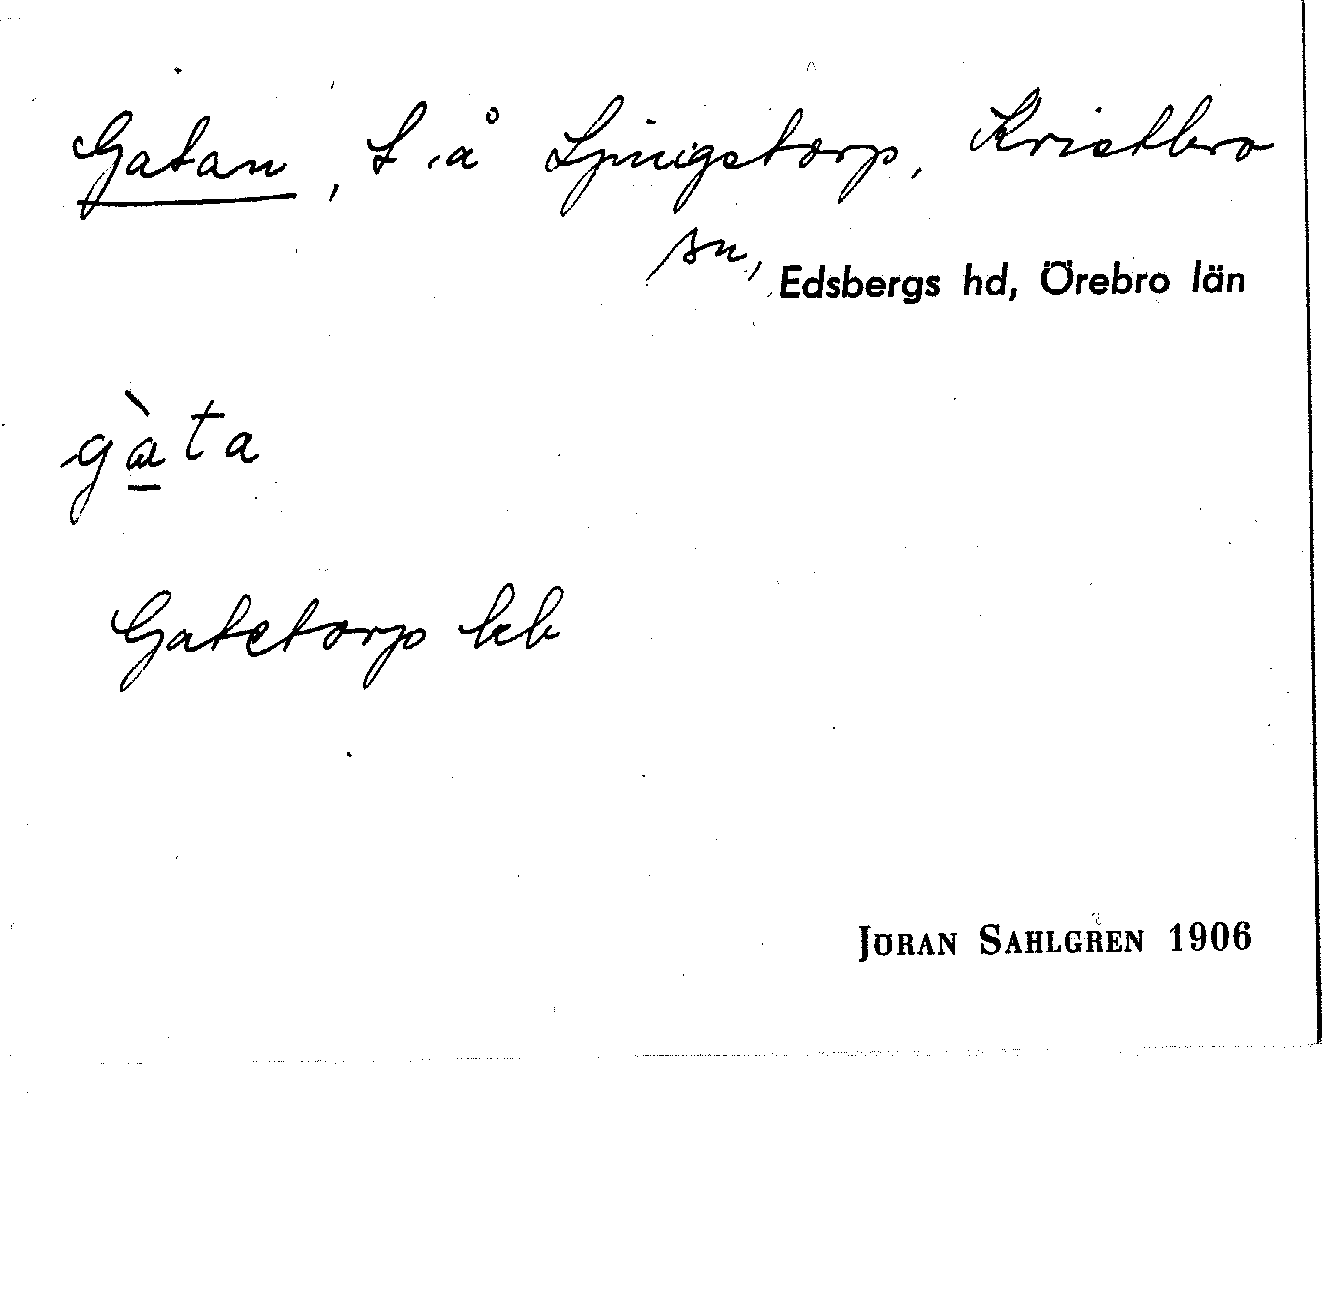 Gatan, t. å Ljungstorp, Kvistbro
sn, Edsbergs hd, Örebro län
gàta
Gatetorp kb
JÖRAN SAHLGREN 1906